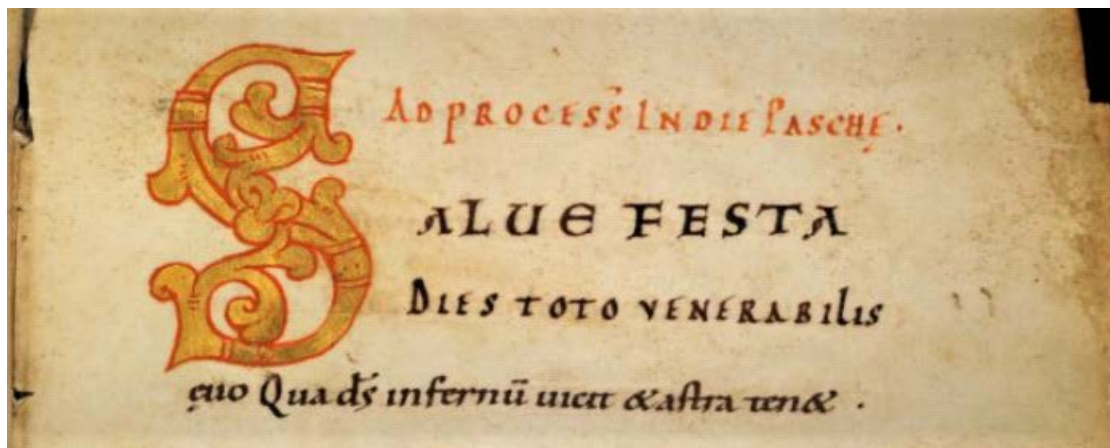 AD PROCESS̄ IN DIE PASCHĘ ·
SALUE FESTA
DIES TOTO VENERABILIS
ęuo Qua dS̄ infernū uicit & astra ten& .